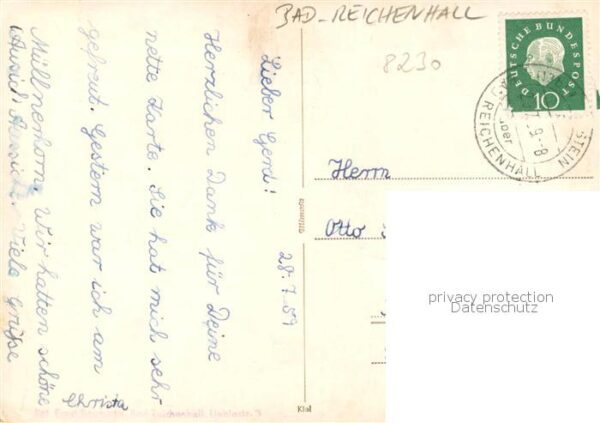 BAD-REICHENHALL
8230
DEUTSCHE BUNDESPOST
10
REICHENHALL
STEIN
Lieber Gerd!
28.7.59
Herzlichen Dank für Deine
nette Karte. Sie hat mich sehr
gefreut. Gestern war ich am
Müllnerhorn. Wir hatten schöne
Viele Grüße
Christa
Herrn
Otto
Kiel
privacy protection
Datenschutz